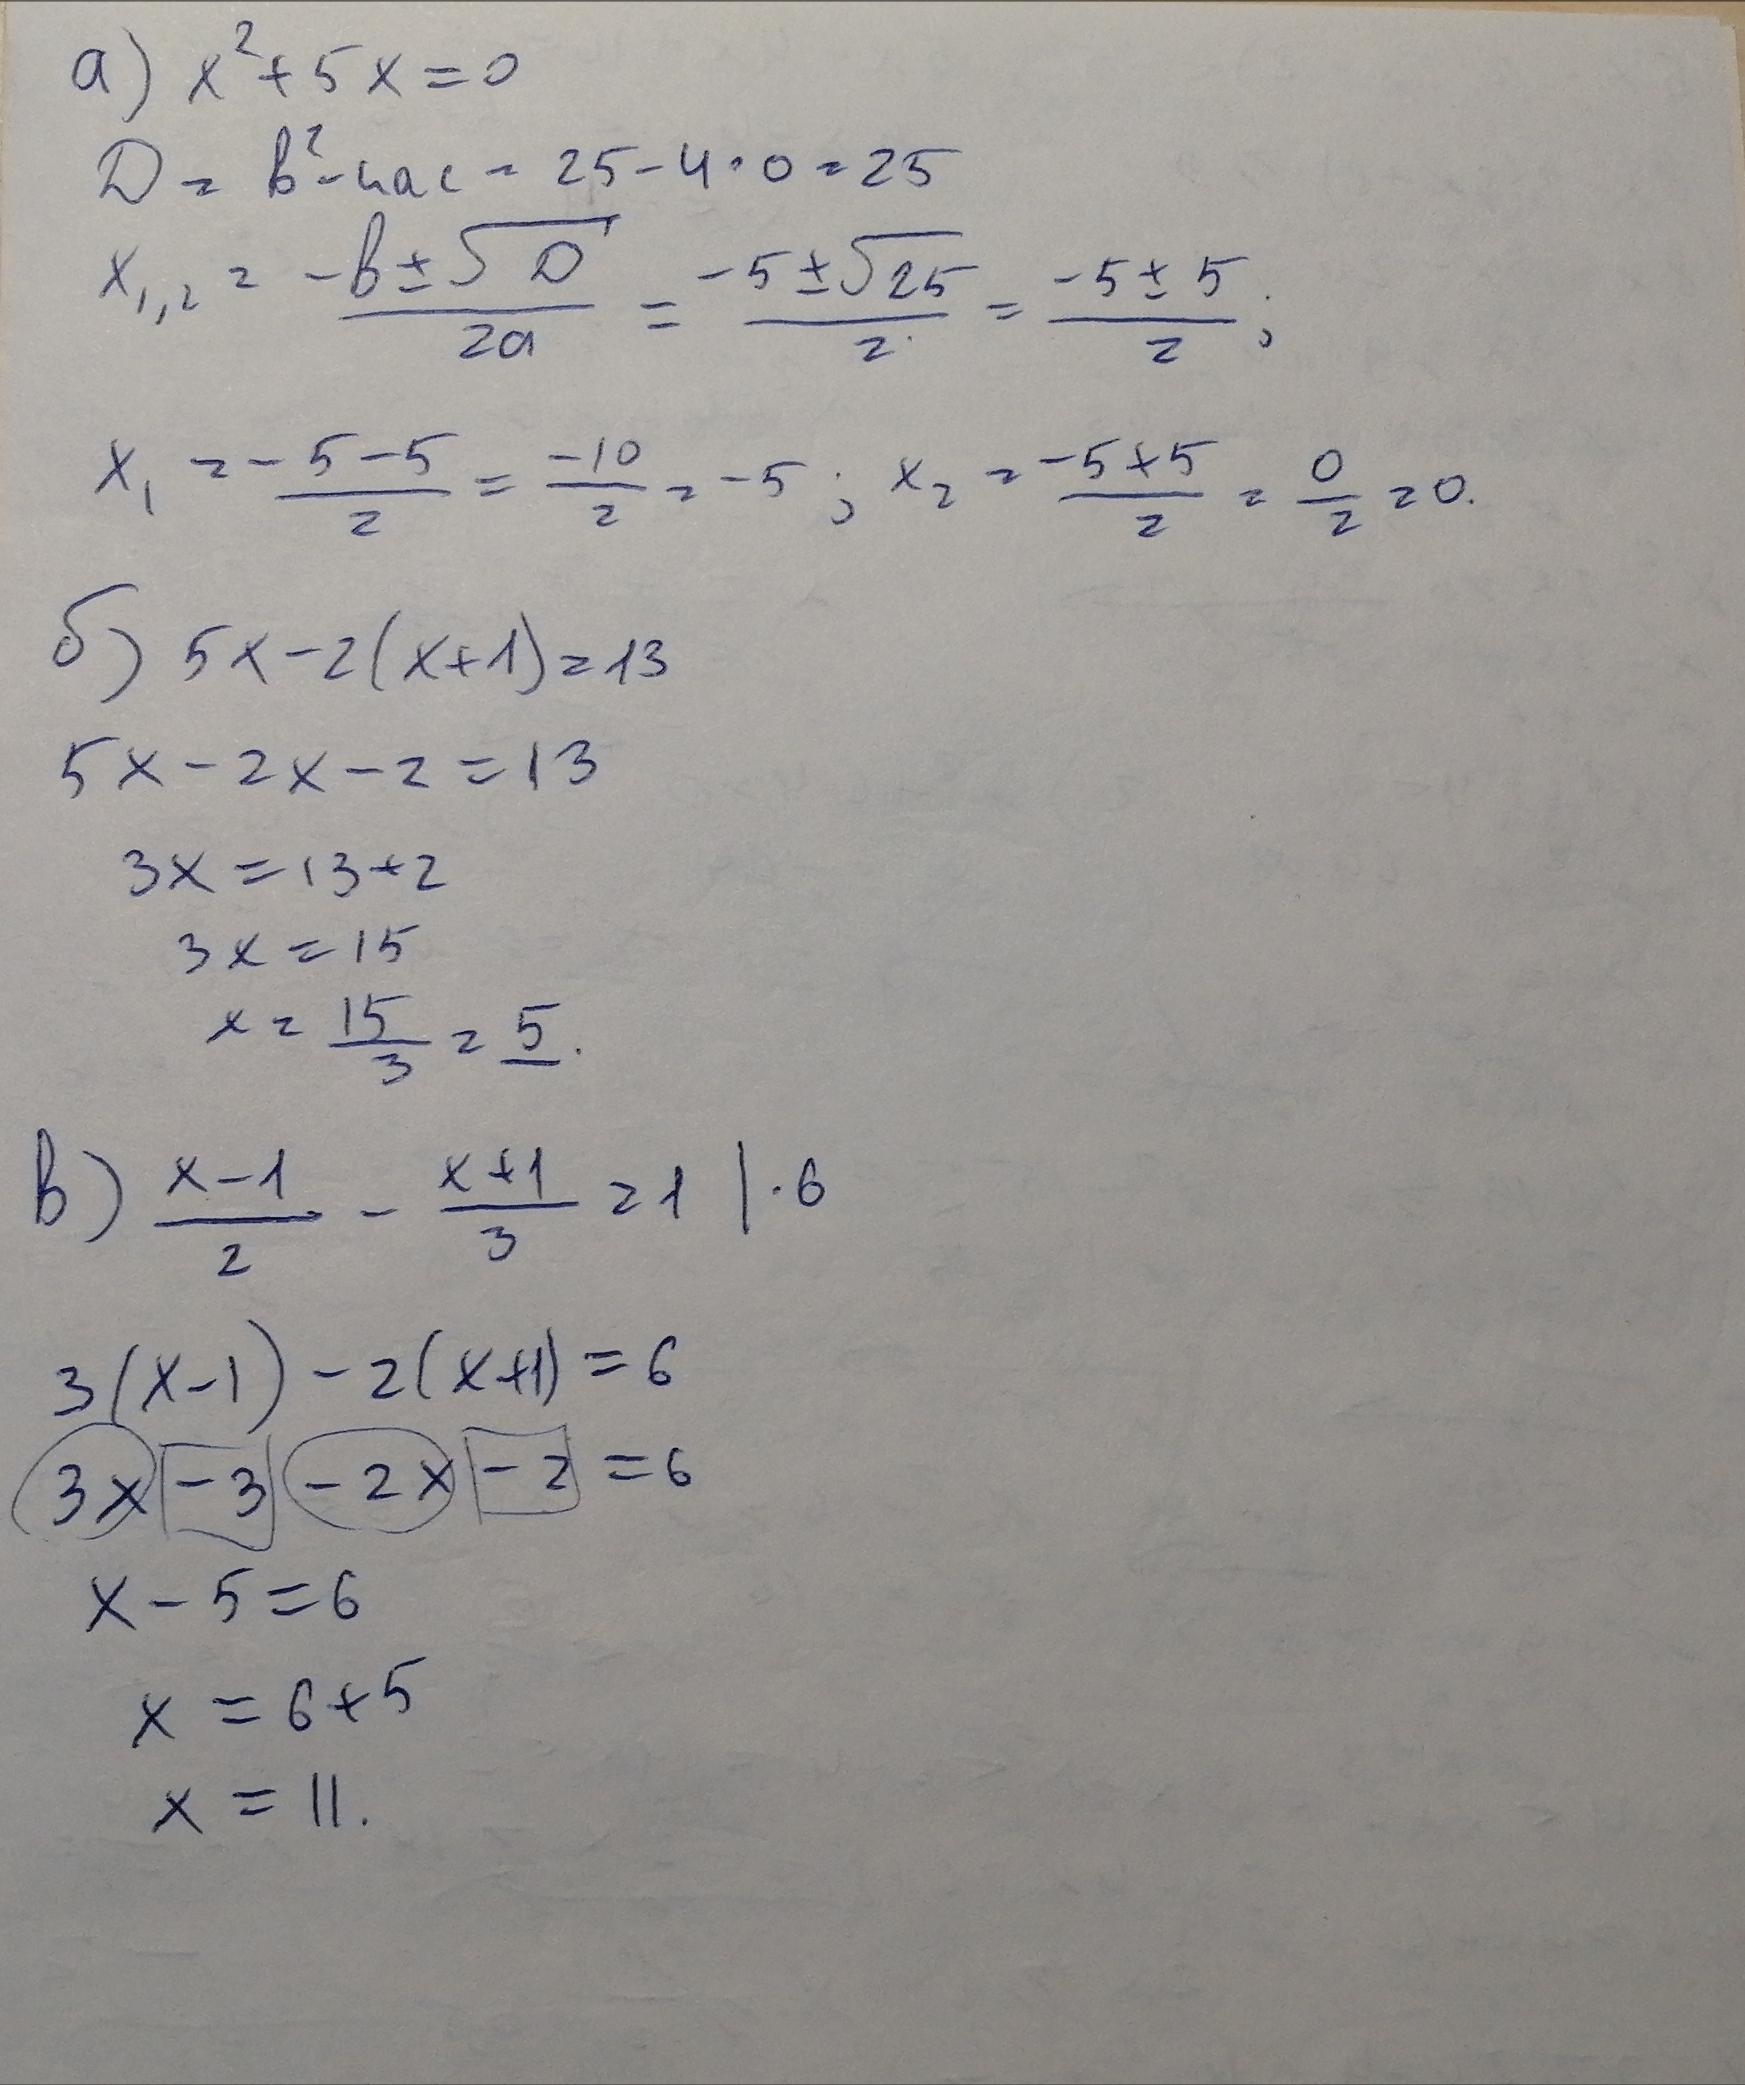 а) x²+5x=0
D = b²-4ac = 25-4·0=25
x₁,₂ = -b±√D/2a = -5±√25/2 = -5±5/2;
x₁ = -5-5/2 = -10/2 = -5; x₂ = -5+5/2 = 0/2 = 0.
б) 5x-2(x+1)=13
5x-2x-2=13
3x=13+2
3x=15
x = 15/3 = 5.
в) x-1/2 - x+1/3 = 1 |·6
3(x-1)-2(x+1)=6
3x-3-2x-2=6
x-5=6
x=6+5
x=11.